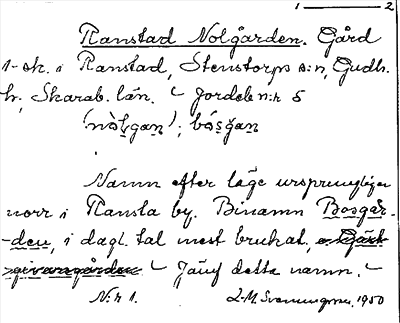 1 ——— 2
Ranstad Nolgården. Gård
1-sk. i Ranstad, Stenstorps s:n, Gudh.
h., Skarab. län. Jordeb n:r 5
(nòļgaṇ); bósgaṇ
Namn efter läge ursprungligen
norr i Ransta by. Binamn Bosgår-
-den, i dagl. tal mest brukat,
givaregården Jämf detta namn.
N:r 1. L-M. Svenungson, 1950